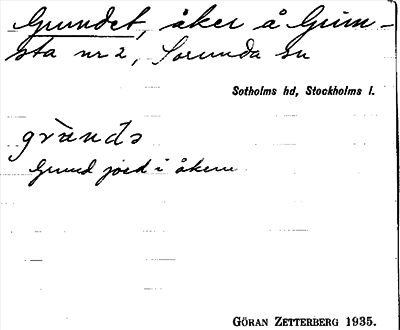 Grundet, åker å Grim-
sta nr 2, Sorunda sn
Sotholms hd, Stockholms l.
Grund jord i åkern
GÖRAN ZETTERBERG 1935.